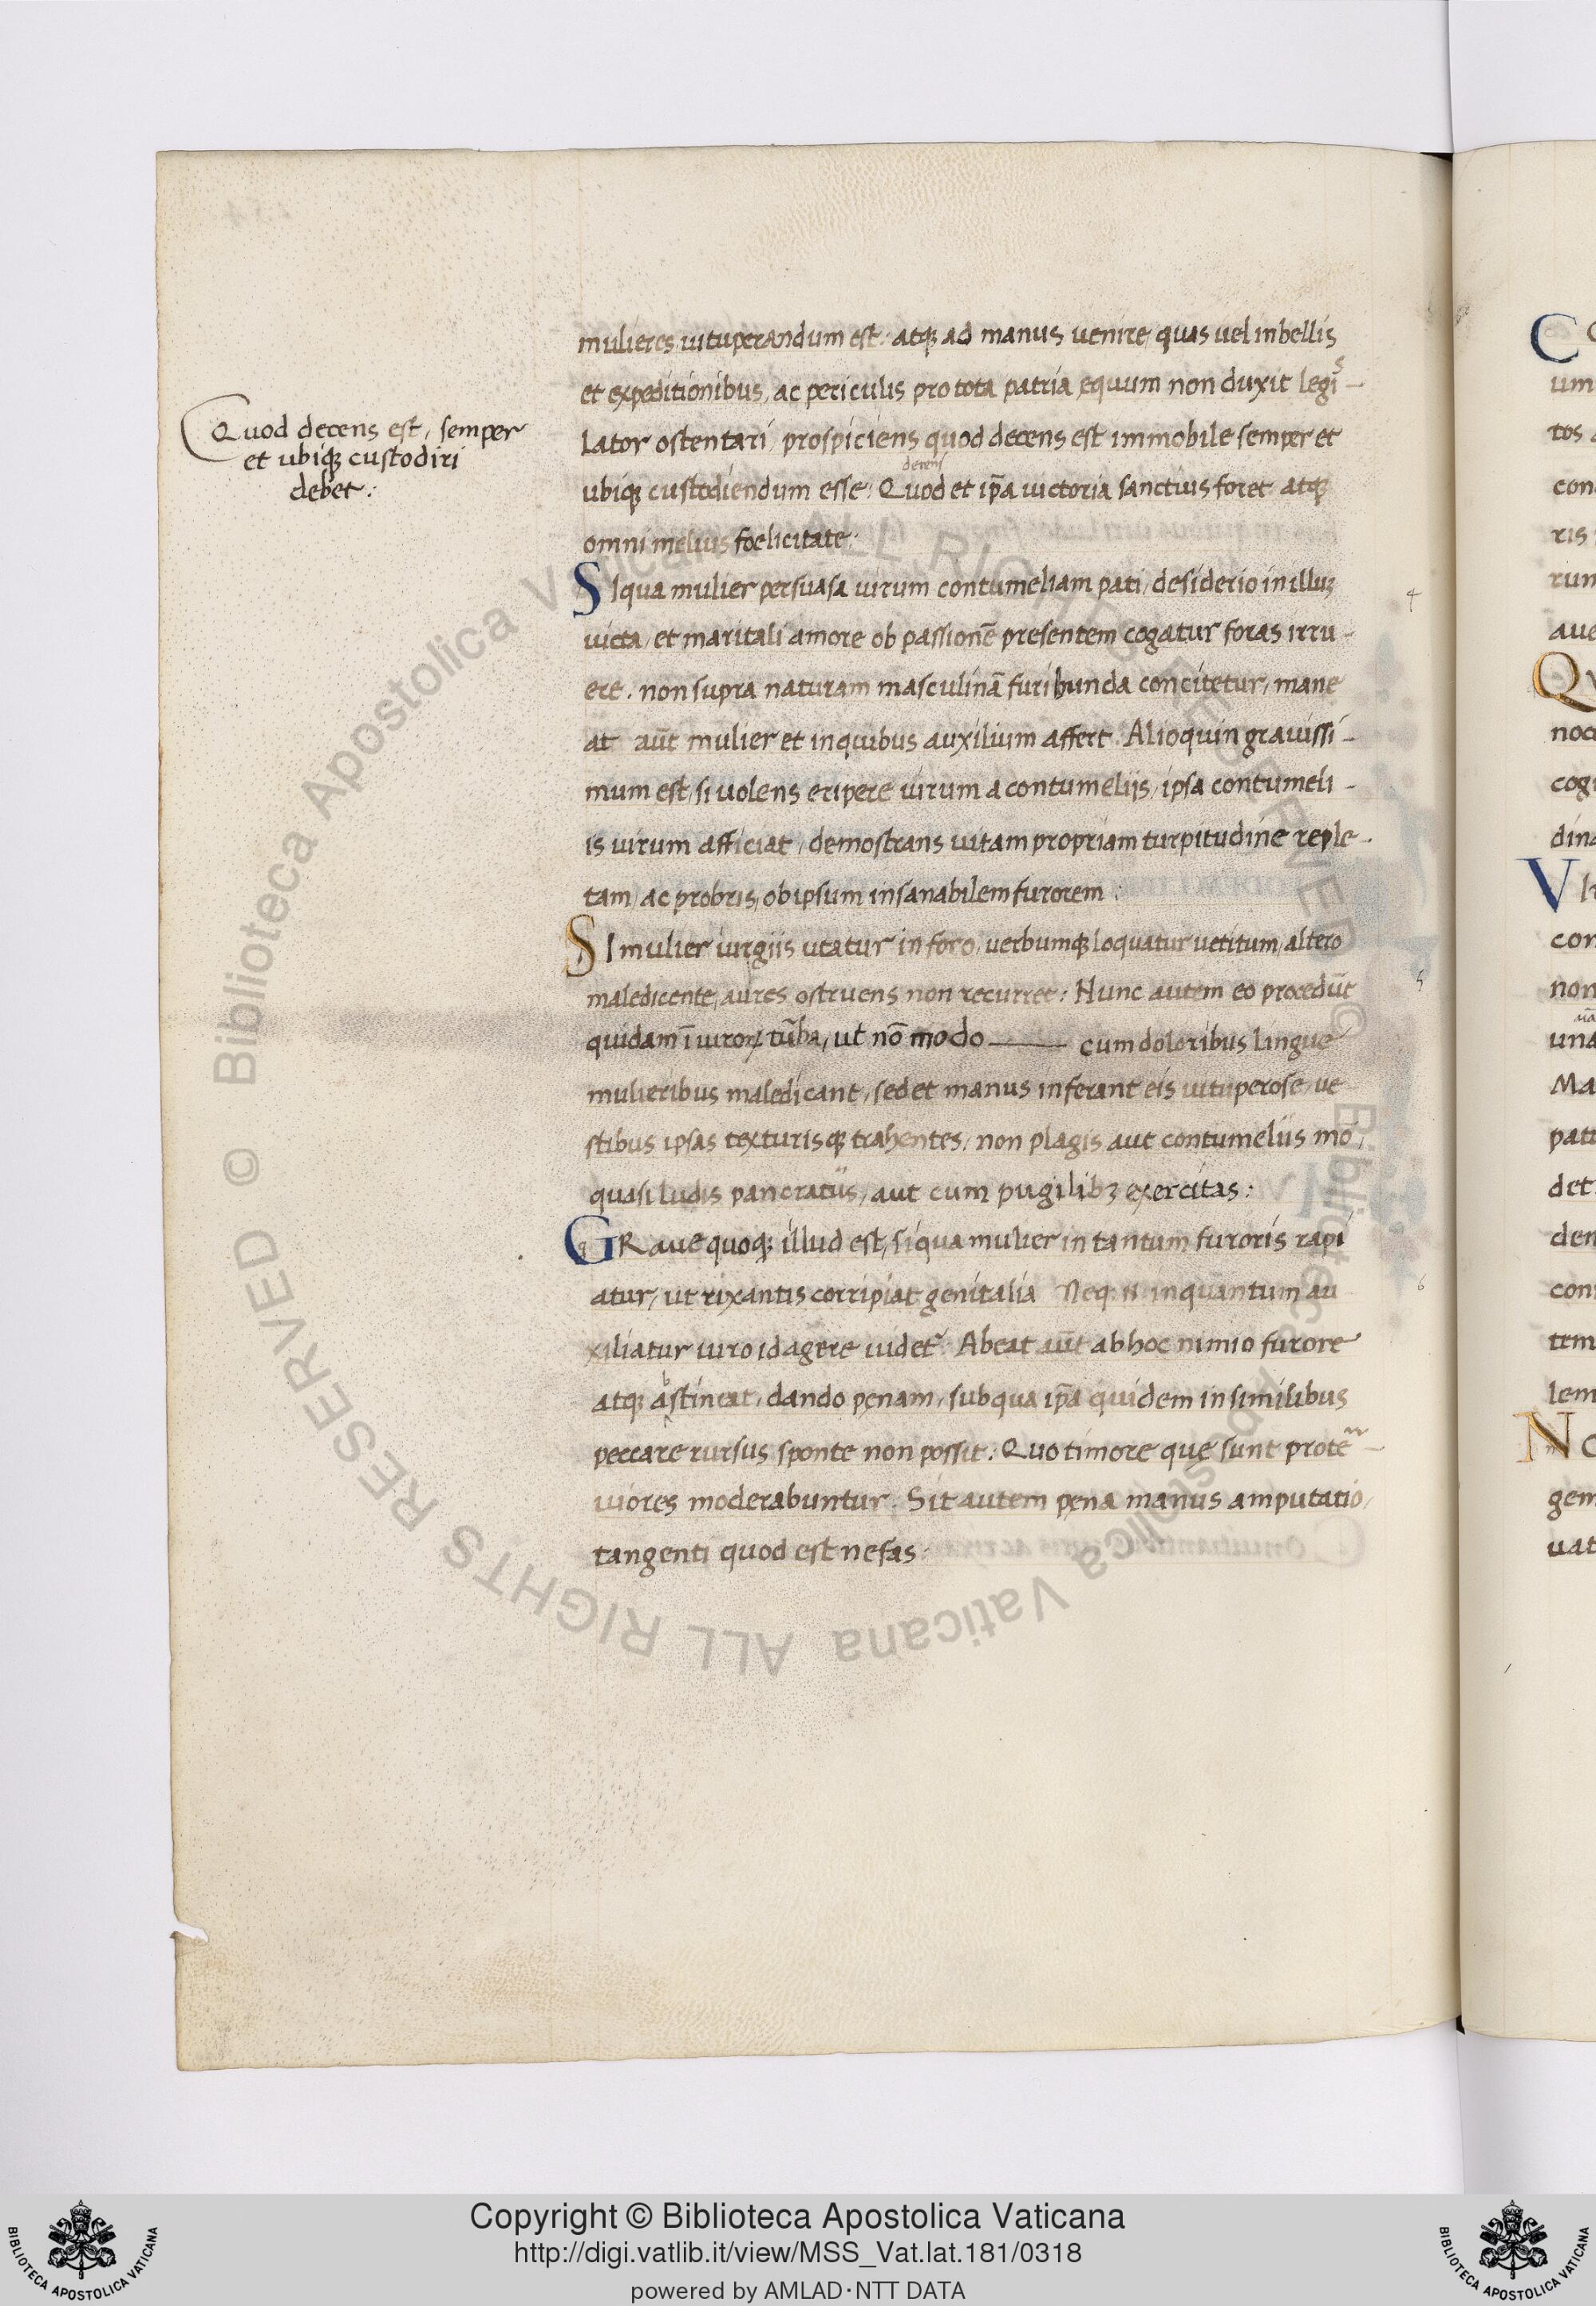 mulieres, uituperandum est: atqȝ ad manus uenire, quas uel in bellis
et expeditionibus, ac periculis pro tota patria ęquum non duxit legiˢ-
Lator ostentari, prospiciens quod decens est immobile semper et
decens
ubiqȝ custodiendum esse, Quod et ip̄a uictoria sanctius foret atqȝ
omni melius foelicitate:
SIqua mulier persuasa uirum contumeliam pati, desiderio in illuȝ
uicta, et maritali amore ob passionē presentem cogatur foras irru-
ere, non supra naturam masculinā furibunda concitetur, mane
at aūt mulier et in quibus auxilium affert. Alioquin grauissi-
mum est, si uolens eripere uirum a contumeliis, ipsa contumeli-
is uirum afficiat, demostrans uitam propriam turpitudine reple-
tam, ac probris, ob ipsum insanabilem furorem:
SI mulier iurgiis utatur in foro, uerbumqȝ loquatur uetitum, altero
maledicente, aures ostruens non recurret: Nunc autem eo procedūt
quidam ī uiroꝝ tūba, ut nō modo —— cum doloribus lingue
mulieribus maledicant, sed et manus inferant eis uituperose, ue
stibus ipsas texturisqȝ trahentes, non plagis aut contumeliis mo,
quasi ludis pancratiis, aut cum pugilibȝ exercitas:
GRaue quoqȝ illud est, siqua mulier in tantum furoris rapi
atur, ut rixantis corripiat genitalia Neqȝ n̄ inquantum au
xiliatur uiro id agere uidet᷑: Abeat aūt ab hoc nimio furore
atqȝ aᵇstineat, dando pęnam, sub qua ip̄a quidem in similibus
peccare rursus sponte non possit: Quo timore quę sunt prote-
uiores moderabuntur. Sit autem pęna manus amputatio,
tangenti quod est nefas:
Quod decens est, semper
et ubiqȝ custodiri
debet:
4
5
6
C
um
tos
con
ris
run
aue
Qu
noc
cog
dina
V
cor
non
una
Ma
pat
det
den
con
tem
lem
N
gem
uat
Copyright © Biblioteca Apostolica Vaticana
http://digi.vatlib.it/view/MSS_Vat.lat.181/0318
powered by AMLAD·NTT DATA
BIBLIOTECA APOSTOLICA VATICANA
BIBLIOTECA APOSTOLICA VATICANA
© Biblioteca Apostolica Vaticana ALL RIGHTS RESERVED
© Biblioteca Apostolica Vaticana ALL RIGHTS RESERVED